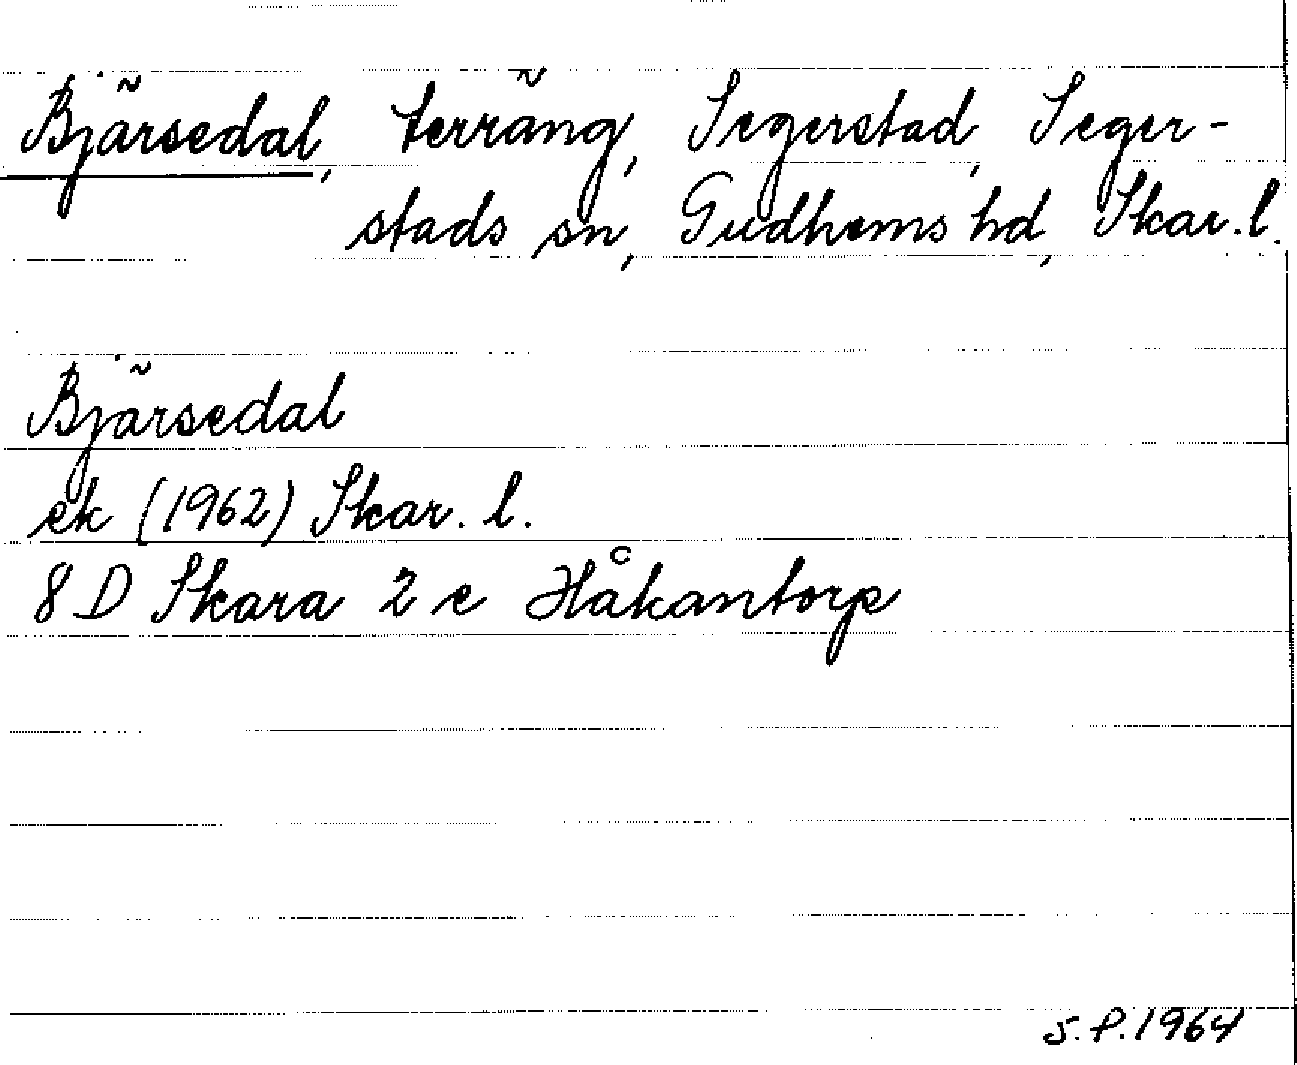 Bjärsedal, terräng, Segerstad, Seger-
stads sn, Gudhems hd, Skar. l.
Bjärsedal
ek (1962) Skar. l.
8 D Skara 2 e Håkantorp
S.P. 1964